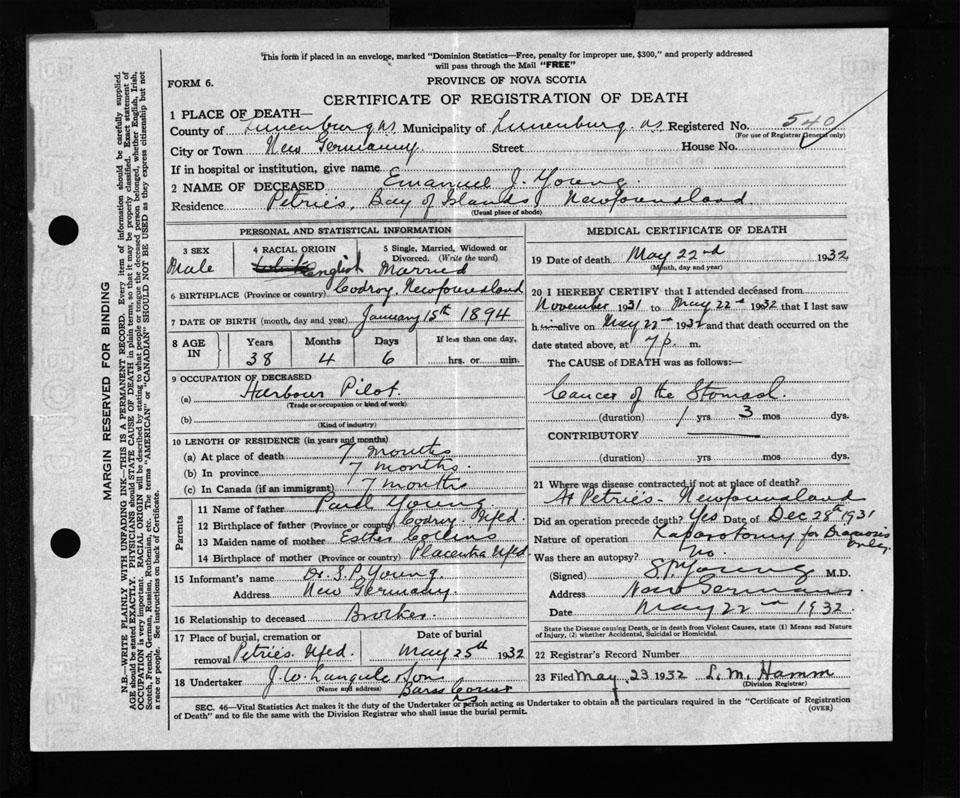 This form if placed in an envelope, marked "Dominion Statistics—Free, penalty for improper use, $300," and properly addressed
will pass through the Mail "FREE"
FORM 6.
PROVINCE OF NOVA SCOTIA
CERTIFICATE OF REGISTRATION OF DEATH
1 PLACE OF DEATH—
County of Lunenburg NS Municipality of Lunenburg. NS Registered No. 540
(For use of Registrar General only)
City or Town New Germanny Street House No.
If in hospital or institution, give name
2 NAME OF DECEASED Emanuel J. Young.
Residence Petries, Bay of Islands, Newfoundland
(Usual place of abode)
PERSONAL AND STATISTICAL INFORMATION
3 SEX Male
4 RACIAL ORIGIN English
5 Single, Married, Widowed or Divorced. (Write the word) Married
6 BIRTHPLACE (Province or country) Codroy, Newfoundland
7 DATE OF BIRTH (month, day and year) January 15th 1894
8 AGE IN Years 38 Months 4 Days 6 If less than one day, hrs. or min.
9 OCCUPATION OF DECEASED
(a) Harbour Pilot.
(Trade or occupation or kind of work)
(b)
(Kind of industry)
10 LENGTH OF RESIDENCE (in years and months)
(a) At place of death 7 months
(b) In province 7 months.
(c) In Canada (if an immigrant) 7 months
Parents
11 Name of father Paul Young
12 Birthplace of father (Province or country) Codroy Nfld.
13 Maiden name of mother Esther Collins
14 Birthplace of mother (Province or country) Placentia Nfld
15 Informant's name Dr. S.P. Young.
Address New Germany.
16 Relationship to deceased Brother
17 Place of burial, cremation or removal Petries Nfld.
Date of burial May 25th 1932
18 Undertaker J. W. & Son
(Name and address) Barss Corner
NS
MEDICAL CERTIFICATE OF DEATH
19 Date of death May 22nd 1932
(Month, day and year)
20 I HEREBY CERTIFY that I attended deceased from
November 1931 to May 22nd 1932 that I last saw
him alive on May 22nd 1932 and that death occurred on the
date stated above, at 7 p. m.
The CAUSE of DEATH was as follows:—
Cancer of the Stomach.
(duration) 1 yrs 3 mos dys.
CONTRIBUTORY
(duration) yrs mos dys.
21 Where was disease contracted if not at place of death?
At Petries - Newfoundland
Did an operation precede death? Yes Date of Dec 28th 1931
Nature of operation Laparotomy for Diagnosis only.
Was there an autopsy? No.
(Signed) S.P. Young M.D.
Address New Germany
Date May 22nd 1932
State the Disease causing Death, or in death from Violent Causes, state (1) Means and Nature
of Injury, (2) whether Accidental, Suicidal or Homicidal.
22 Registrar's Record Number
23 Filed May 23 1932 L. M. Hamm
(Division Registrar)
SEC. 46—Vital Statistics Act makes it the duty of the Undertaker or person acting as Undertaker to obtain all the particulars required in the "Certificate of Registration
of Death" and to file the same with the Division Registrar who shall issue the burial permit.
(OVER)
MARGIN RESERVED FOR BINDING
N.B.—WRITE PLAINLY WITH UNFADING INK—THIS IS A PERMANENT RECORD. Every item of information should be carefully supplied.
AGE should be stated EXACTLY. PHYSICIANS should STATE CAUSE OF DEATH in plain terms, so that it may be properly classified. Exact statement of
OCCUPATION is very important. RACIAL ORIGIN will be described by stating to what people or tongue the deceased person belonged, whether English, Irish,
Scotch, French, German, Russian, Ruthenian, etc. The terms "AMERICAN" or "CANADIAN" SHOULD NOT BE USED as they express citizenship but not
a race or people. See instructions on back of Certificate.